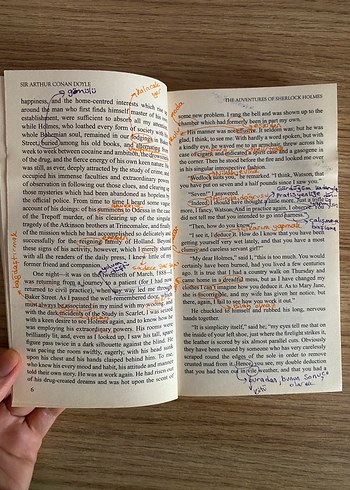 SIR ARTHUR CONAN DOYLE
happiness, and the home-centred interests which rise up
around the man who first finds himself master of his own
establishment, were sufficient to absorb all my
while Holmes, who loathed every form of society with his
whole Bohemian soul, remained in our lodgings in Baker
Street, buried among his old books, and alternating from
week to week between cocaine and ambition, the drowsiness
of the drug, and the fierce energy of his own keen nature. He
was still, as ever, deeply attracted by the study of crime, and
occupied his immense faculties and extraordinary powers
of observation in following out those clues, and clearing up
those mysteries which had been abandoned as hopeless by
the official police. From time to time I heard some vague
account of his doings: of his summons to Odessa in the case
of the Trepoff murder, of his clearing up of the singular
tragedy of the Atkinson brothers at Trincomalee, and finally
of the mission which he had accomplished so delicately and
successfully for the reigning family of Holland. Beyond
these signs of his activity, however, which I merely shared
with all the readers of the daily press, I knew little of my
former friend and companion.
One night—it was on the twentieth of March, 1888—I
was returning from a journey to a patient (for I had now
returned to civil practice), when my way led me through
Baker Street. As I passed the well-remembered door, which
must always be associated in my mind with my wooing, and
with the dark incidents of the Study in Scarlet, I was seized
with a keen desire to see Holmes again, and to know how he
was employing his extraordinary powers. His rooms were
brilliantly lit, and, even as I looked up, I saw his tall, spare
figure pass twice in a dark silhouette against the blind. He
was pacing the room swiftly, eagerly, with his head sunk
upon his chest and his hands clasped behind him. To me,
who knew his every mood and habit, his attitude and manner
told their own story. He was at work again. He had risen out
of his drug-created dreams and was hot upon the scent of
6
THE ADVENTURES OF SHERLOCK HOLMES
some new problem. I rang the bell and was shown up to the
chamber which had formerly been in part my own.
His manner was not effusive. It seldom was; but he was
glad, I think, to see me. With hardly a word spoken, but with
a kindly eye, he waved me to an armchair, threw across his
case of cigars, and indicated a spirit case and a gasogene in
the corner. Then he stood before the fire and looked me over
in his singular introspective fashion.
"Wedlock suits you," he remarked. "I think, Watson, that
you have put on seven and a half pounds since I saw you."
"Seven!" I answered.
"Indeed, I should have thought a little more. Just a trifle
more, I fancy, Watson. And in practice again, I observe. You
did not tell me that you intended to go into harness."
"Then, how do you know?"
"I see it, I deduce it. How do I know that you have been
getting yourself very wet lately, and that you have a most
clumsy and careless servant girl?"
"My dear Holmes," said I, "this is too much. You would
certainly have been burned, had you lived a few centuries
ago. It is true that I had a country walk on Thursday and
came home in a dreadful mess, but as I have changed my
clothes I can't imagine how you deduce it. As to Mary Jane,
she is incorrigible, and my wife has given her notice, but
there, again, I fail to see how you work it out."
He chuckled to himself and rubbed his long, nervous
hands together.
"It is simplicity itself," said he; "my eyes tell me that on
the inside of your left shoe, just where the firelight strikes it,
the leather is scored by six almost parallel cuts. Obviously
they have been caused by someone who has very carelessly
scraped round the edges of the sole in order to remove
crusted mud from it. Hence, you see, my double deduction
that you had been out in vile weather, and that you had a
buradan bunun sonucu
olarak